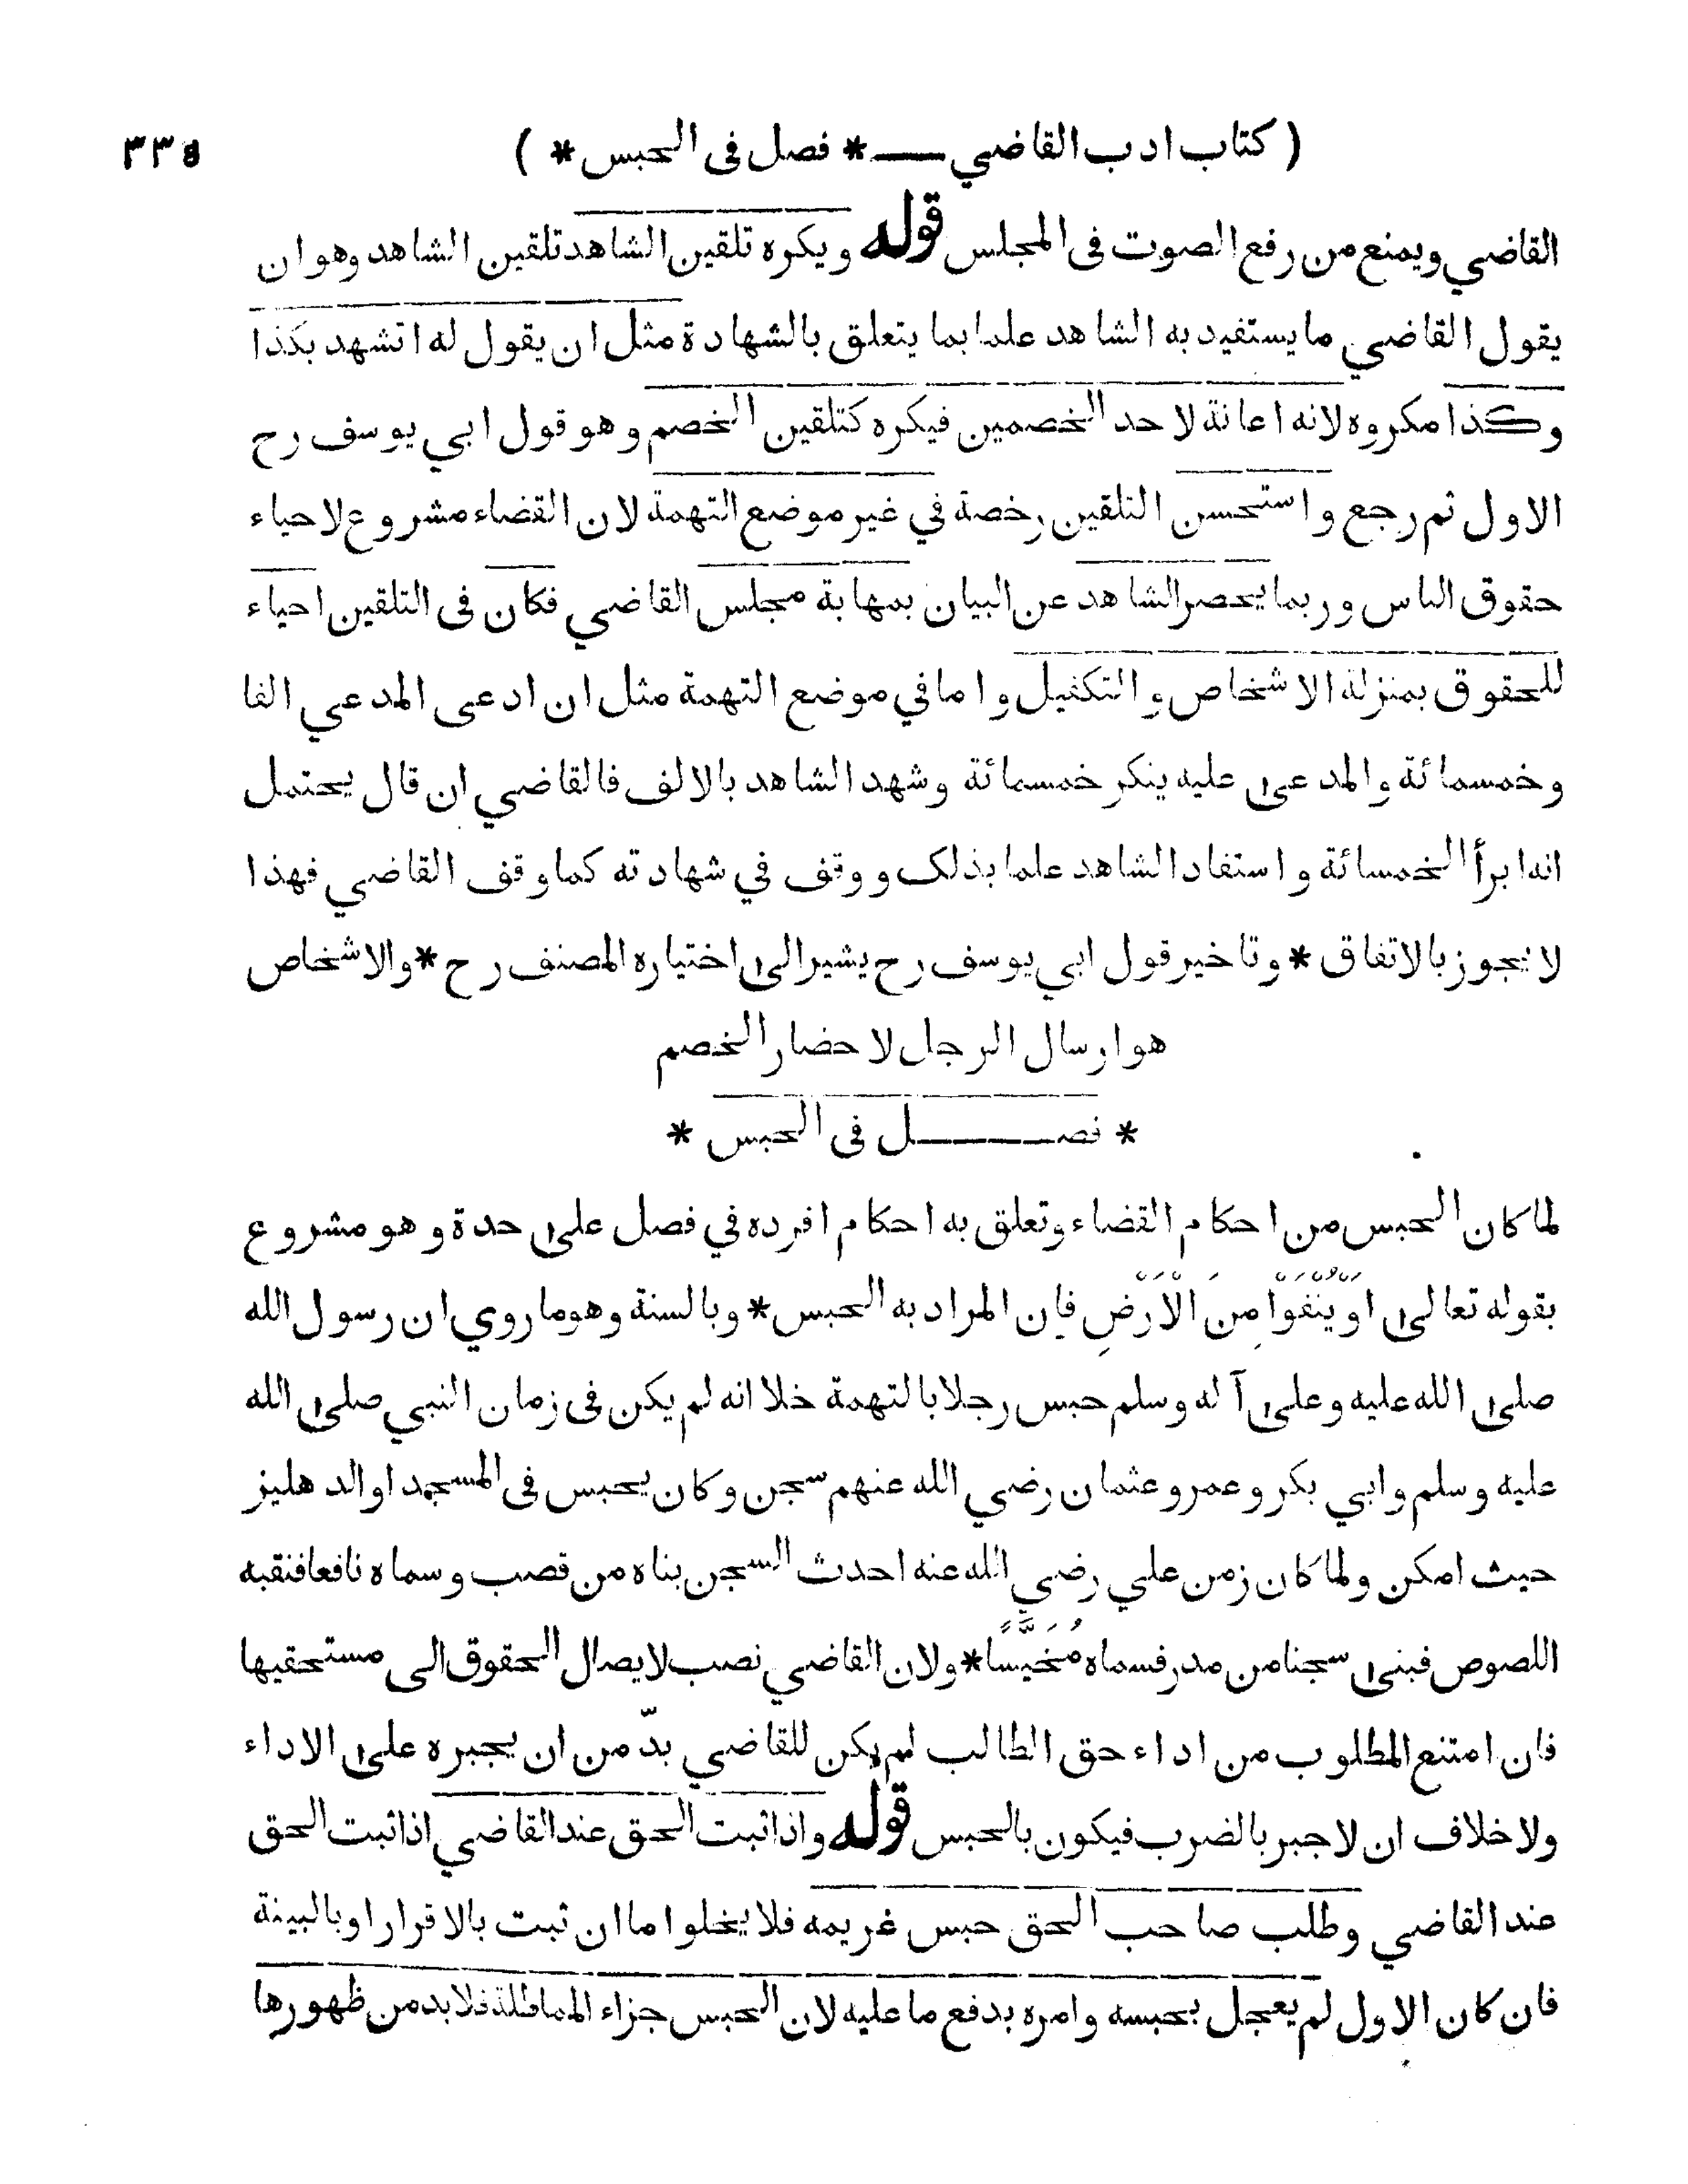 ( كتاب ادب القاضي ــــ * فصل فى الحبس * ) ٣٣٥
القاضي ويمنع من رفع الصوت فى المجلس قوله ويكره تلقين الشاهد تلقين الشاهد وهو ان
يقول القاضي ما يستفيد به الشاهد علما بما يتعلق بالشهادة مثل ان يقول له اتشهد بكذا
وكذا مكروه لانه اعانة لاحد الخصمين فيكره كتلقين الخصم وهو قول ابي يوسف رح
الاول ثم رجع واستحسن التلقين رخصة في غير موضع التهمة لان القضاء مشروع لاحياء
حقوق الناس وربما يحصر الشاهد عن البيان بمهابة مجلس القاضي فكان فى التلقين احياء
للحقوق بمنزلة الاشخاص والتكفيل واما في موضع التهمة مثل ان ادعى المدعي الفا
وخمسمائة والمدعى عليه ينكر خمسمائة وشهد الشاهد بالالف فالقاضي ان قال يحتمل
انه ابرأ الخمسائة واستفاد الشاهد علما بذلك ووقف في شهادته كما وقف القاضي فهذا
لا يجوز بالاتفاق * وتاخير قول ابي يوسف رح يشير الى اختياره المصنف رح * والاشخاص
هو ارسال الرجل لاحضار الخصم
* فصــــل فى الحبس *
لما كان الحبس من احكام القضاء وتعلق به احكام افرده في فصل على حدة وهو مشروع
بقوله تعالى اَوْ يُنْفَوْا مِنَ الْاَرْضِ فان المراد به الحبس * وبالسنة وهو ماروي ان رسول الله
صلى الله عليه وعلى آله وسلم حبس رجلا بالتهمة خلا انه لم يكن فى زمان النبي صلى الله
عليه وسلم وابي بكر وعمر وعثمان رضي الله عنهم سجن وكان يحبس فى المسجد او الدهليز
حيث امكن ولما كان زمن علي رضي الله عنه احدث السجن بناه من قصب وسماه نافعا فنقبه
اللصوص فبنى سجنا من مدر فسماه مُخَيَّسًا * ولان القاضي نصب لايصال الحقوق الى مستحقيها
فان امتنع المطلوب من اداء حق الطالب لم يكن للقاضي بدّ من ان يجبره على الاداء
ولا خلاف ان لا جبر بالضرب فيكون بالحبس قوله واذا ثبت الحق عند القاضي اذا ثبت الحق
عند القاضي وطلب صاحب الحق حبس غريمه فلا يخلوا ما ان ثبت بالاقرار او بالبينة
فان كان الاول لم يعجل بحبسه وامره بدفع ما عليه لان الحبس جزاء المماطلة فلا بد من ظهورها